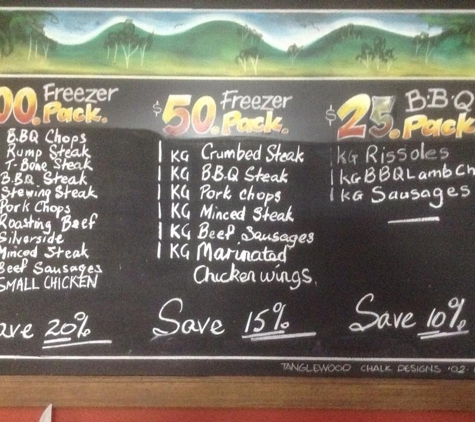 00. Freezer
Pack.
B.B.Q Chops
Rump Steak
T-Bone Steak
B.B.Q. Steak
Stewing Steak
Pork Chops
Roasting Beef
Silverside
Minced Steak
Beef Sausages
SMALL CHICKEN
ave 20%
$50. Freezer
Pack.
1 KG Crumbed Steak
1 KG B.B.Q Steak
1 KG Pork chops
1 KG Minced Steak
1 KG Beef Sausages
1 KG Marinated
Chicken wings.
Save 15%
$25. B·B·Q
Pack
1 KG Rissoles
1 KG BBQ Lamb Ch
1 KG Sausages
Save 10%
TANGLEWOOD CHALK DESIGNS '02